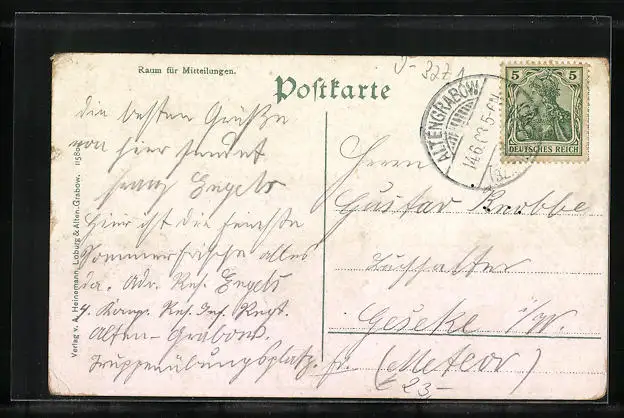 Raum für Mitteilungen.
Postkarte
V-3271
5 5
DEUTSCHES REICH
ALTENGRABOW
14.6.08 5-6N
die besten Grüße
von hier sendet
Franz Engels
Hier ist die feinste
Sommerfrische alles
da. Adr. Res. Engels
4. Komp. Res. Inf. Regt.
Alten-Grabow.
Truppenübungsplatz.
Herrn
Gustav Knobbe
Buchhalter
Geseke i/W.
(Meteor)
23,-
Verlag v. A. Heinemann, Loburg & Alten-Grabow. 11580